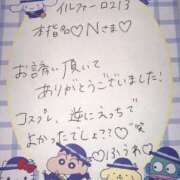 イルフィーロ213
本指名♡Nさま♡
お誘い頂いて
ありがとうございました!
コスプレ、逆にえっちで
よかったでしょ??♡笑